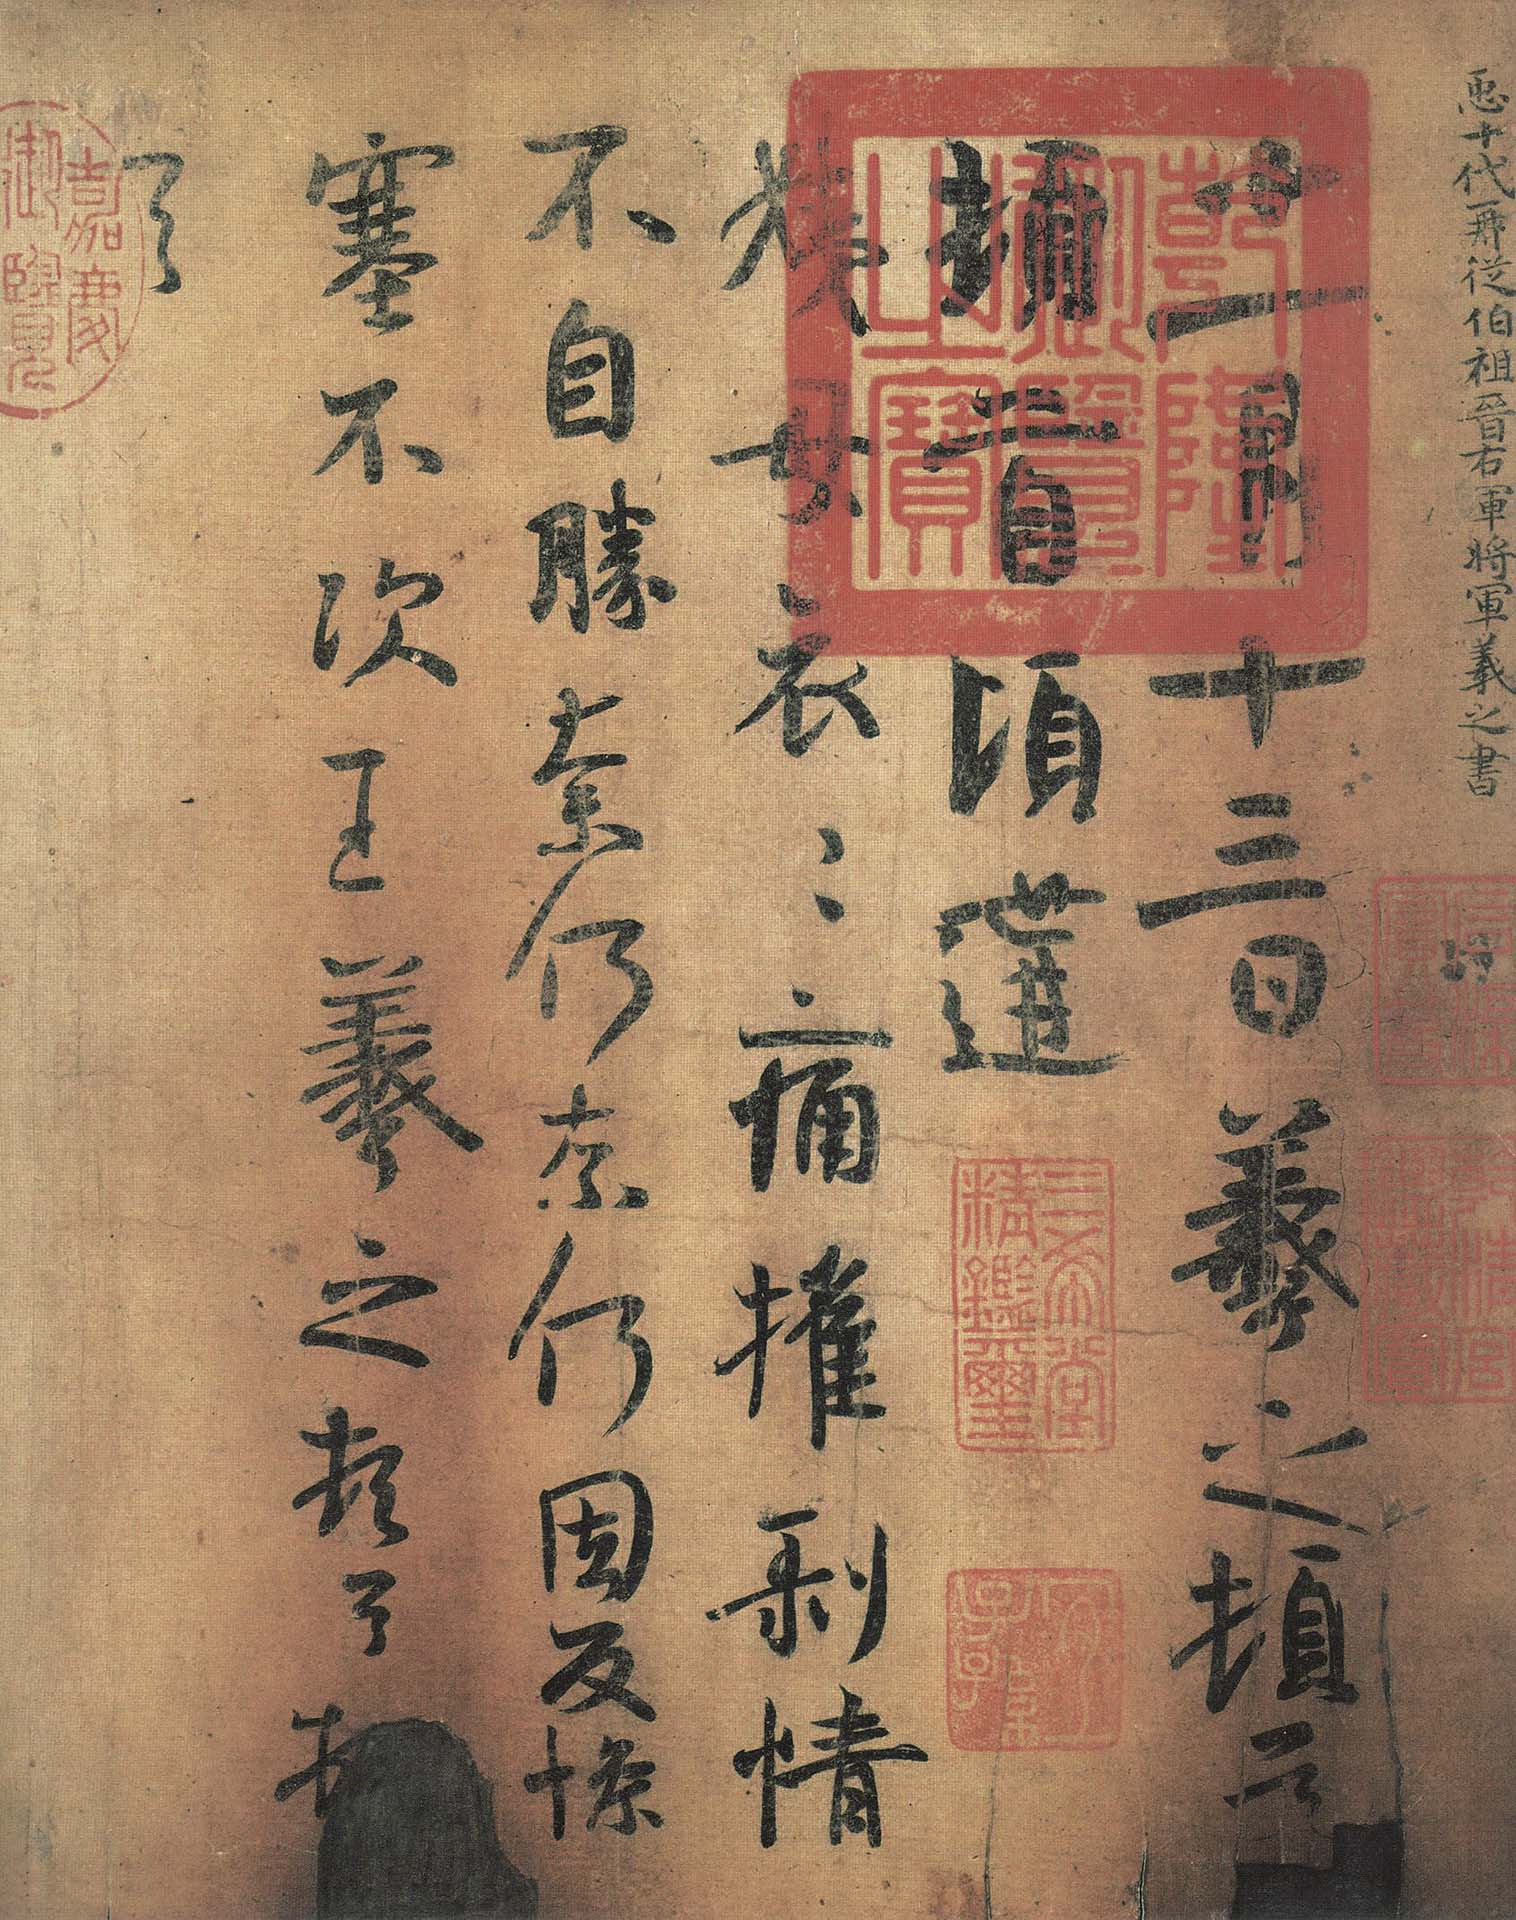 𢘑十代再從伯祖晉右軍將軍羲之書
十一月十三日羲之頓首
頓首頃遘
姨母哀〻痛摧剝情
不自勝奈何奈何因反慘
塞不次王羲之頓首頓
首
乾隆御覽之寶
三希堂精鑑璽
宜子孫
乾清宮鑑藏寶
嘉慶御覽